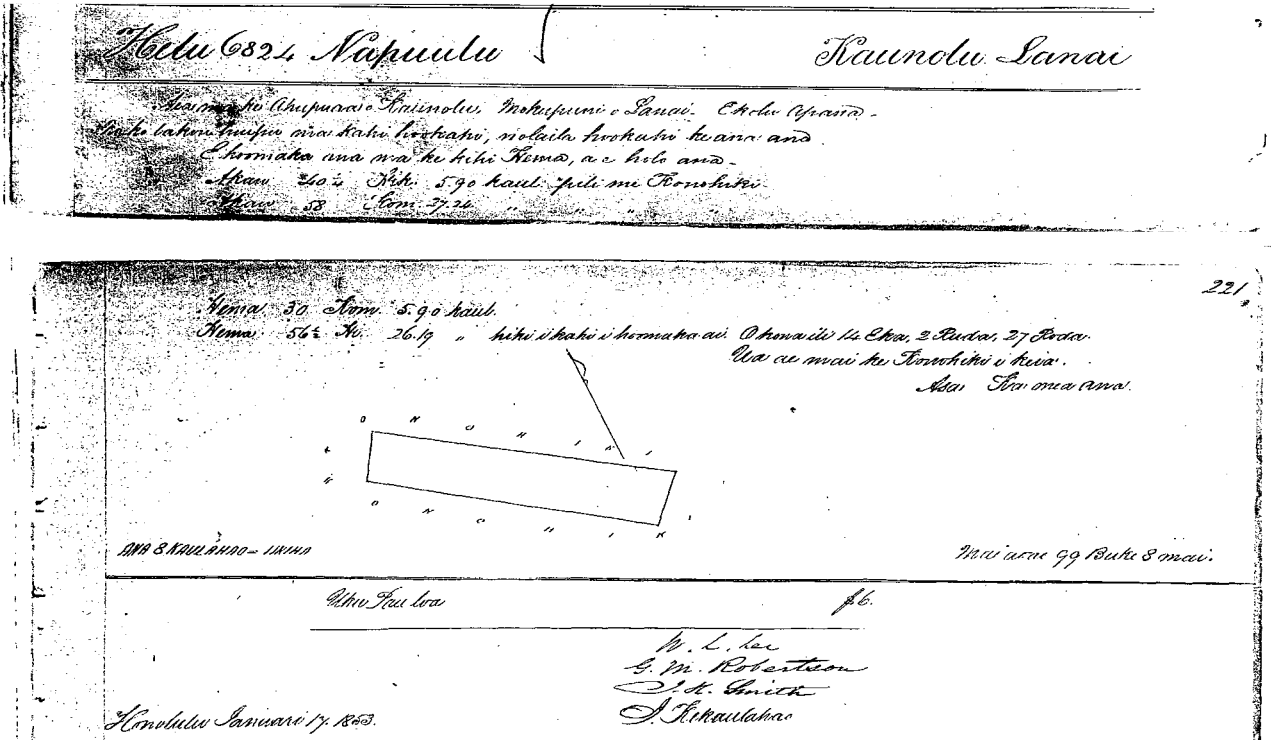 Helu 6824 Napuulu Kaunolu Lanai
Aia ma ke Ahupuaa o Kaunolu, Mokupuni o Lanai. Ekolu Apana.
lakou huipu ma kahi hookahi, nolaila hookahi ke ana ana
E hoomaka ana ma ke kihi Hema, a e holo ana.
Akau 40½ Hik. 5.90 kaul. pili me Konohiki
Akau 58 Kom. 27.24 " " " "
221
Hema 30 Kom. 5.90 kaul.
Hema 56½ Hi. 26.19 " hiki i kahi i hoomaka ai. Okona ili 14 Eka, 2 Ruda, 27 Roda.
Ua ae mai ke Konohiki i keia.
Asa Kaimea ana.
K O N O H I K I
K O N O H I K I
ANA 8 KAULAHAO = IKINA
Mai aoao 99 Buke 8 mai.
Uku Pau loa $6.
W. L. Lee
G. M. Robertson
J. H. Smith
J. Kekaulahao
Honolulu Ianuari 17. 1853.